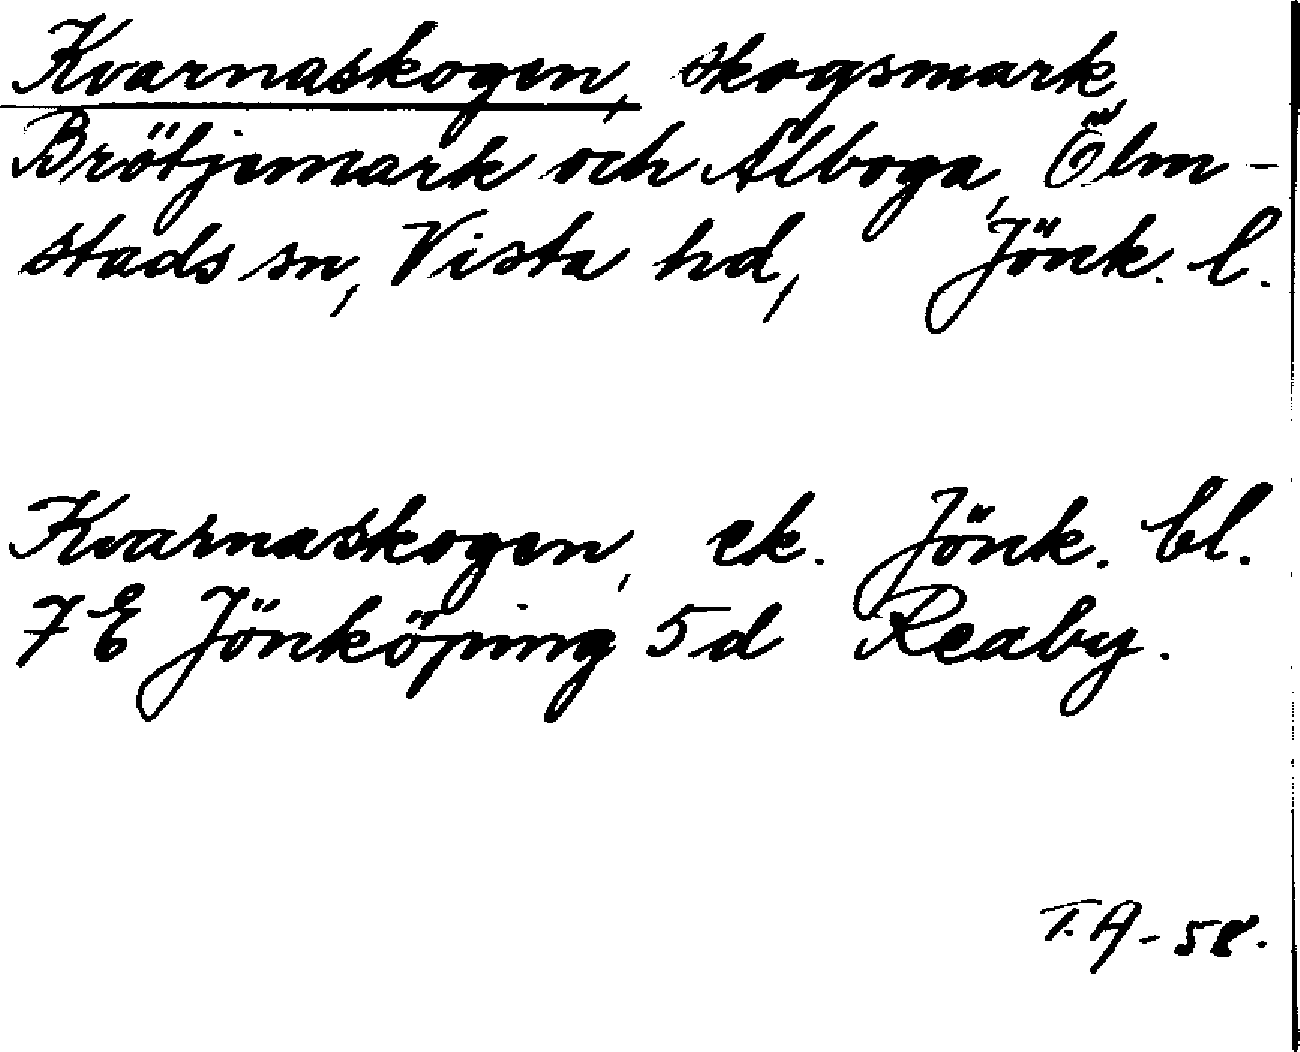 Kvarnaskogen, skogsmark,
Brötjemark och Älboga, Ölm-
stads sn, Vista hd, Jönk. l.
Kvarnaskogen, ek. Jönk. bl.
7E Jönköping 5d Reaby.
T.A-58.